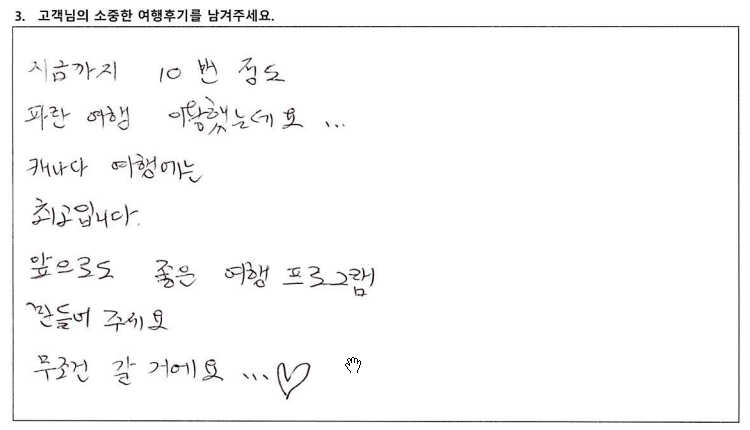 3. 고객님의 소중한 여행후기를 남겨주세요.
지금까지 10 번 정도
파란 여행 이용했는데요 ...
캐나다 여행에는
최고입니다.
앞으로도 좋은 여행 프로그램
만들어 주세요
무조건 갈 거에요 ...♡